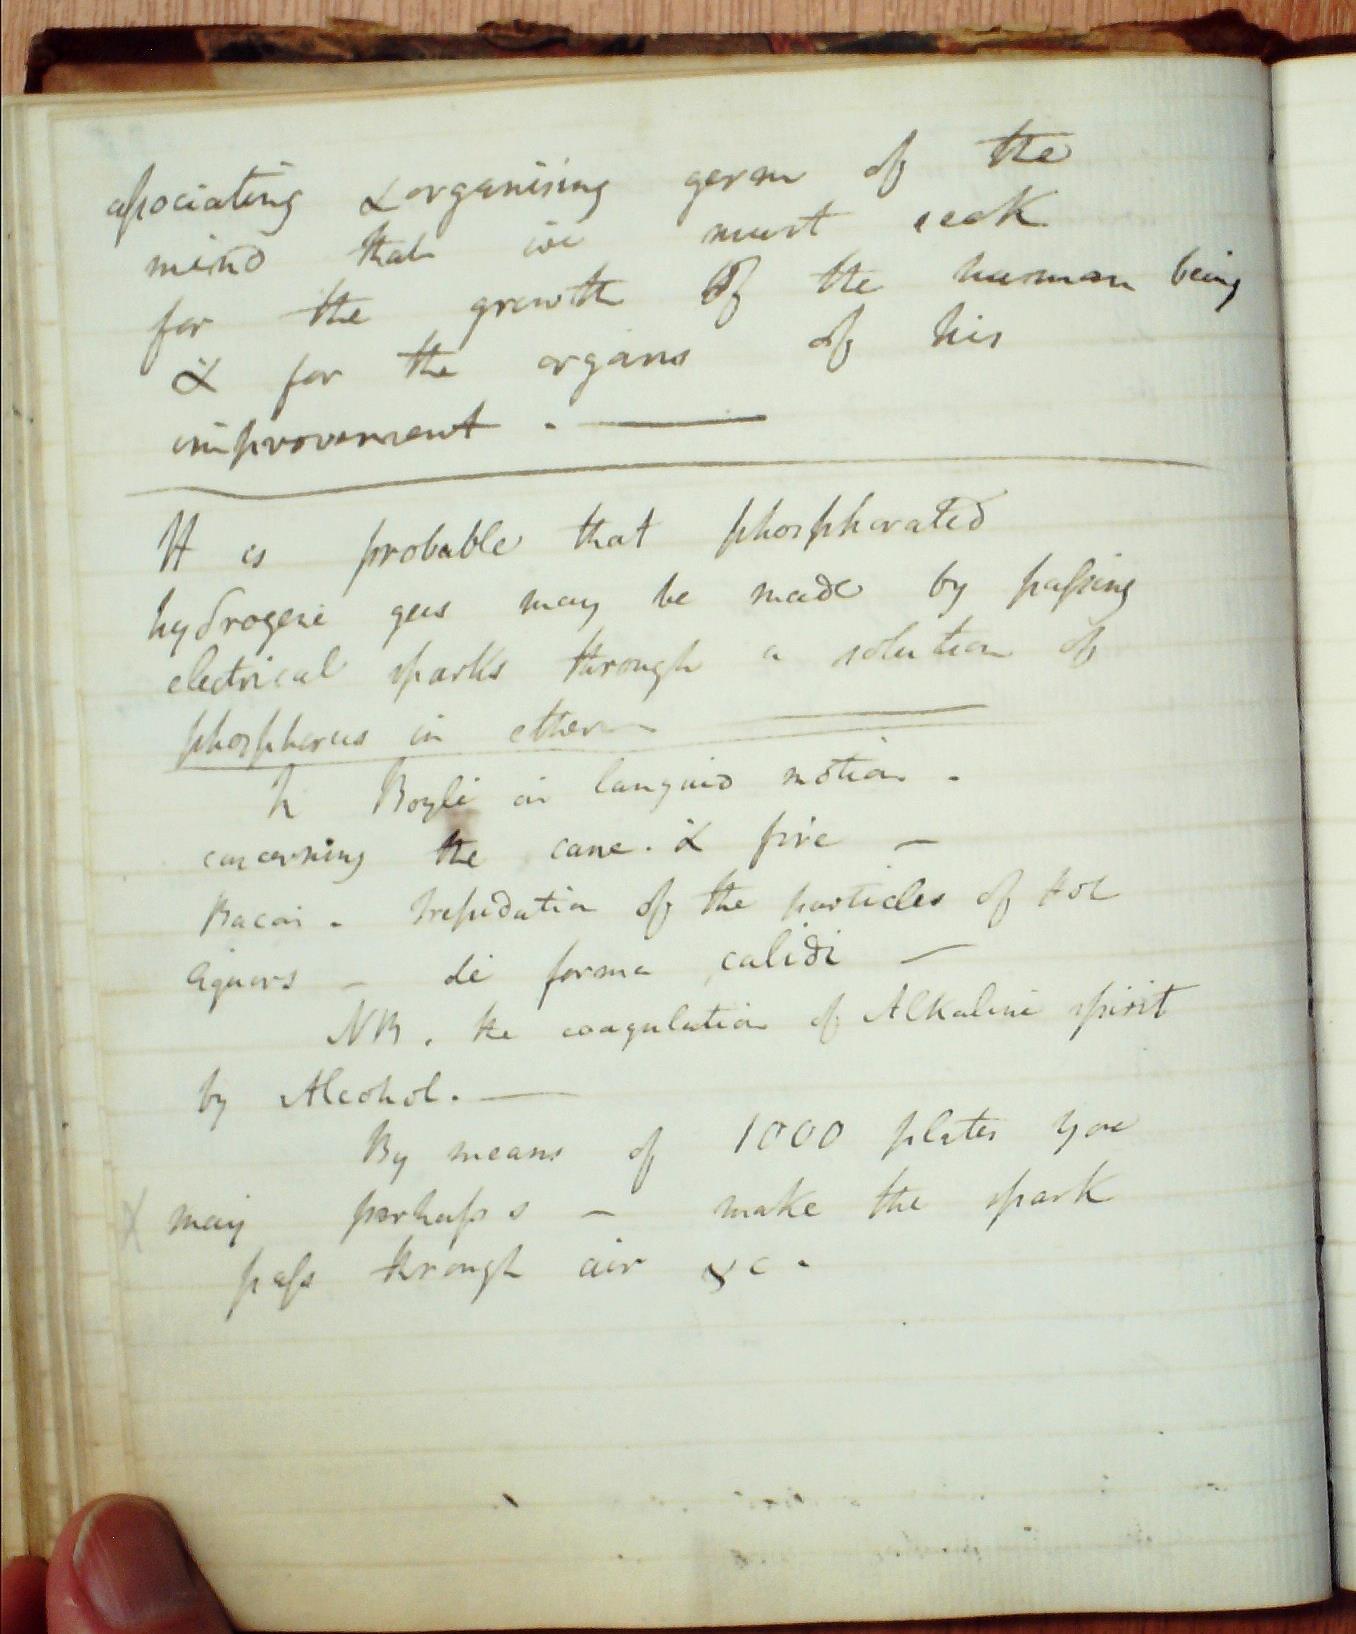 associating & organising germ of the
mind that we must seek
for the growth of the human being
& for the organs of his
improvement. —
It is probable that phosphorated
hydrogene gas may be made by passing
electrical sparks through a solution of
phosphorus in ether —
Boyle on languid motion.
concerning the cane. & fire —
Bacon. trepidation of the particles of hot
liquors — de forma calidi —
NB. the coagulation of Alkaline spirit
by Alcohol. —
By means of 1000 plates you
X may perhaps — make the spark
pass through air &c.